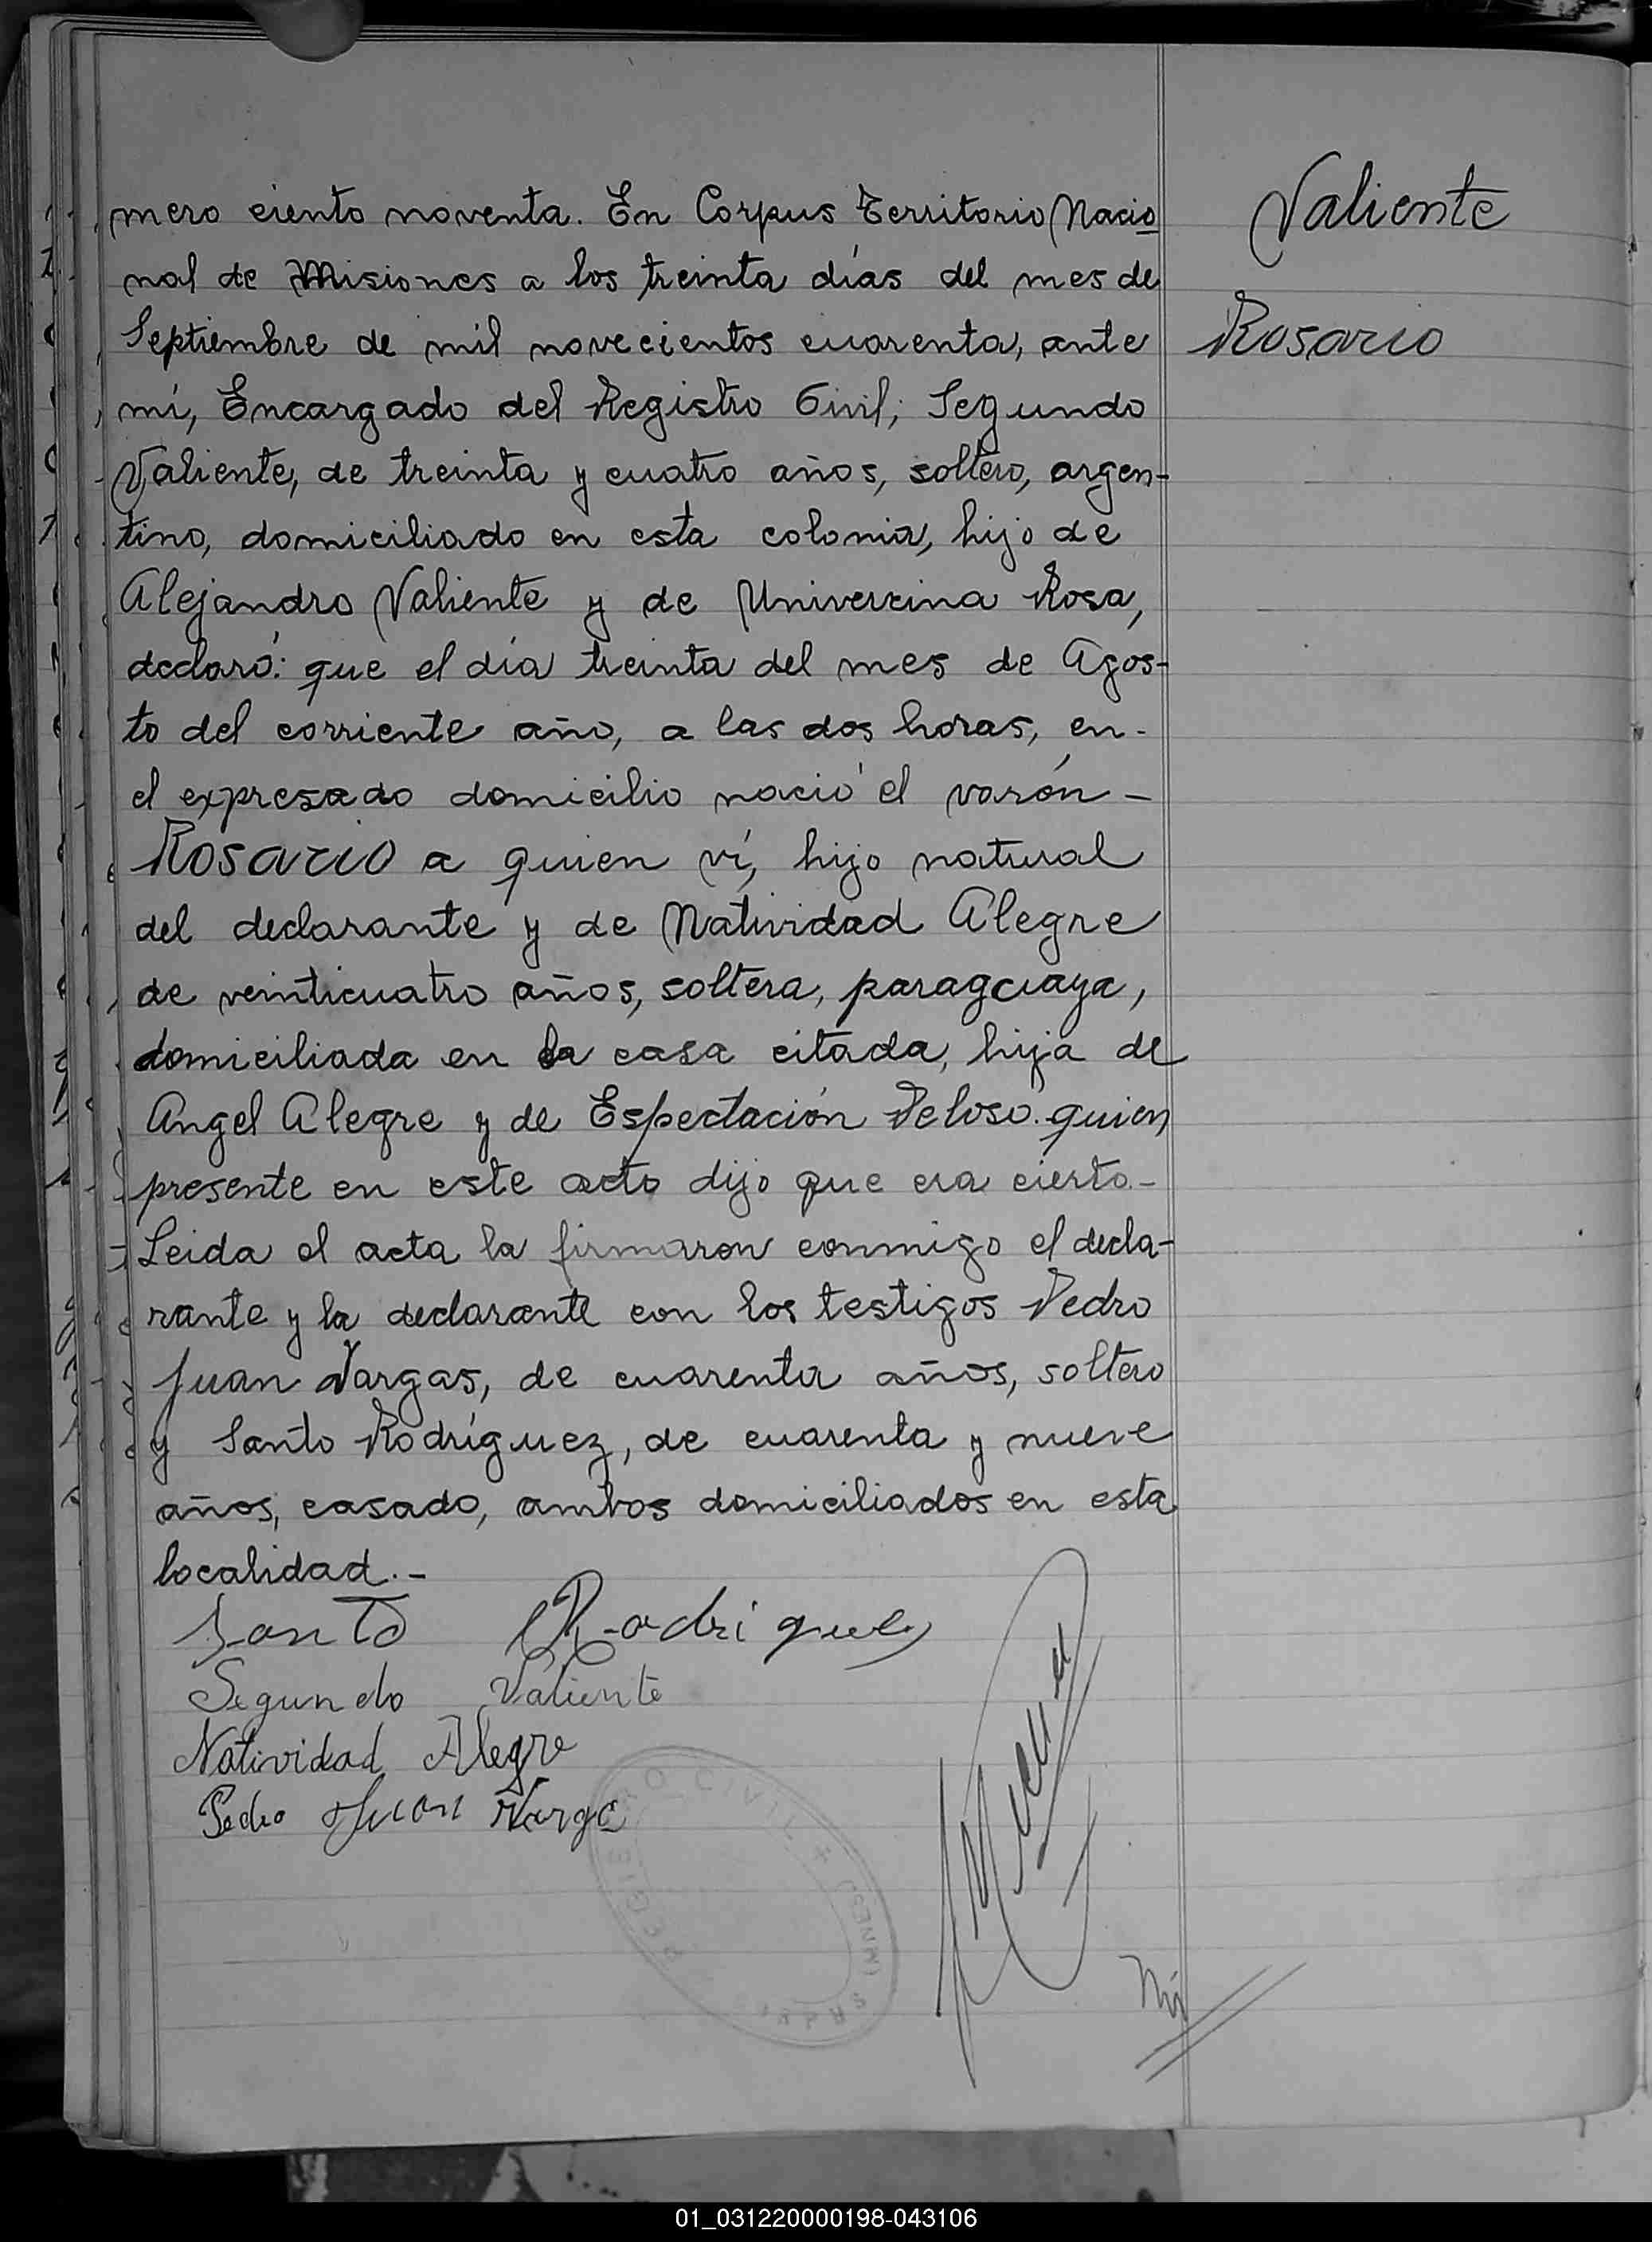 mero ciento noventa. En Corpus Territorio Nacio
nal de Misiones a los treinta días del mes de
Septiembre de mil novecientos cuarenta, ante
mí, Encargado del Registro Civil; Segundo
Valiente, de treinta y cuatro años, soltero, argen-
tino, domiciliado en esta colonia, hijo de
Alejandro Valiente y de Univercina Rosa,
declaró: que el día treinta del mes de Agos-
to del corriente año, a las dos horas, en-
el expresado domicilio nació el varón -
Rosario a quien ví, hijo natural
del declarante y de Natividad Alegre
de veinticuatro años, soltera, paraguaya,
domiciliada en la casa citada, hija de
Angel Alegre y de Espectación Veloso. quien
presente en este acto dijo que era cierto.-
Leida el acta la firmaron conmigo el decla-
rante y la declarante con los testigos Pedro
Juan Vargas, de cuarenta años, soltero
y Santo Rodríguez, de cuarenta y nueve
años, casado, ambos domiciliados en esta
localidad.-
Santo Rodriguez
Segundo Valiente
Natividad Alegre
Pedro Juan Varga
Valiente
Rosario
01_031220000198-043106